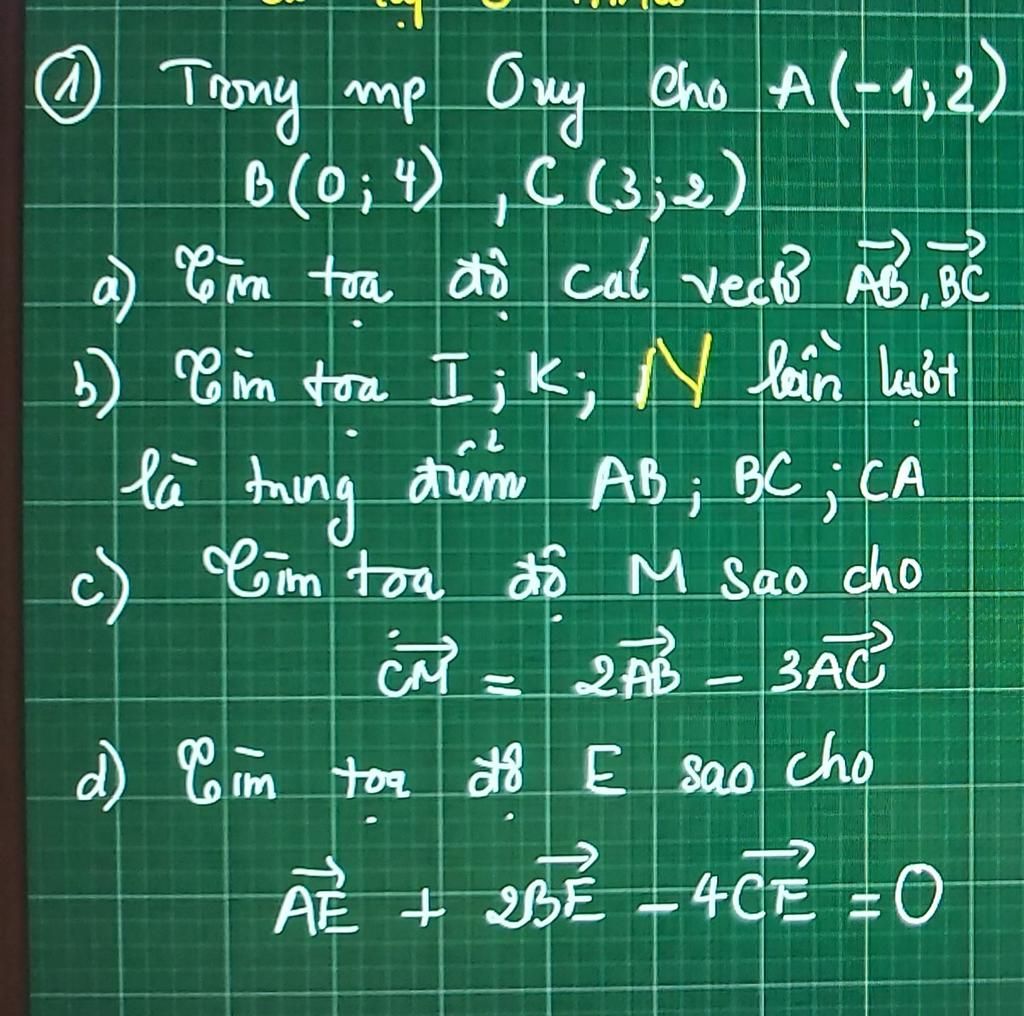 ① Trong mp Oxy cho A(-1;2)
B(0;4), C(3;2)
a) Tìm tọa độ các vectơ $\overrightarrow{AB}$, $\overrightarrow{BC}$
b) Tìm tọa I; K; N lần lượt
là trung điểm AB; BC; CA
c) Tìm tọa độ M sao cho
$\overrightarrow{CM}$ = 2$\overrightarrow{AB}$ - 3$\overrightarrow{AC}$
d) Tìm tọa độ E sao cho
$\overrightarrow{AE}$ + 2$\overrightarrow{BE}$ - 4$\overrightarrow{CE}$ = 0